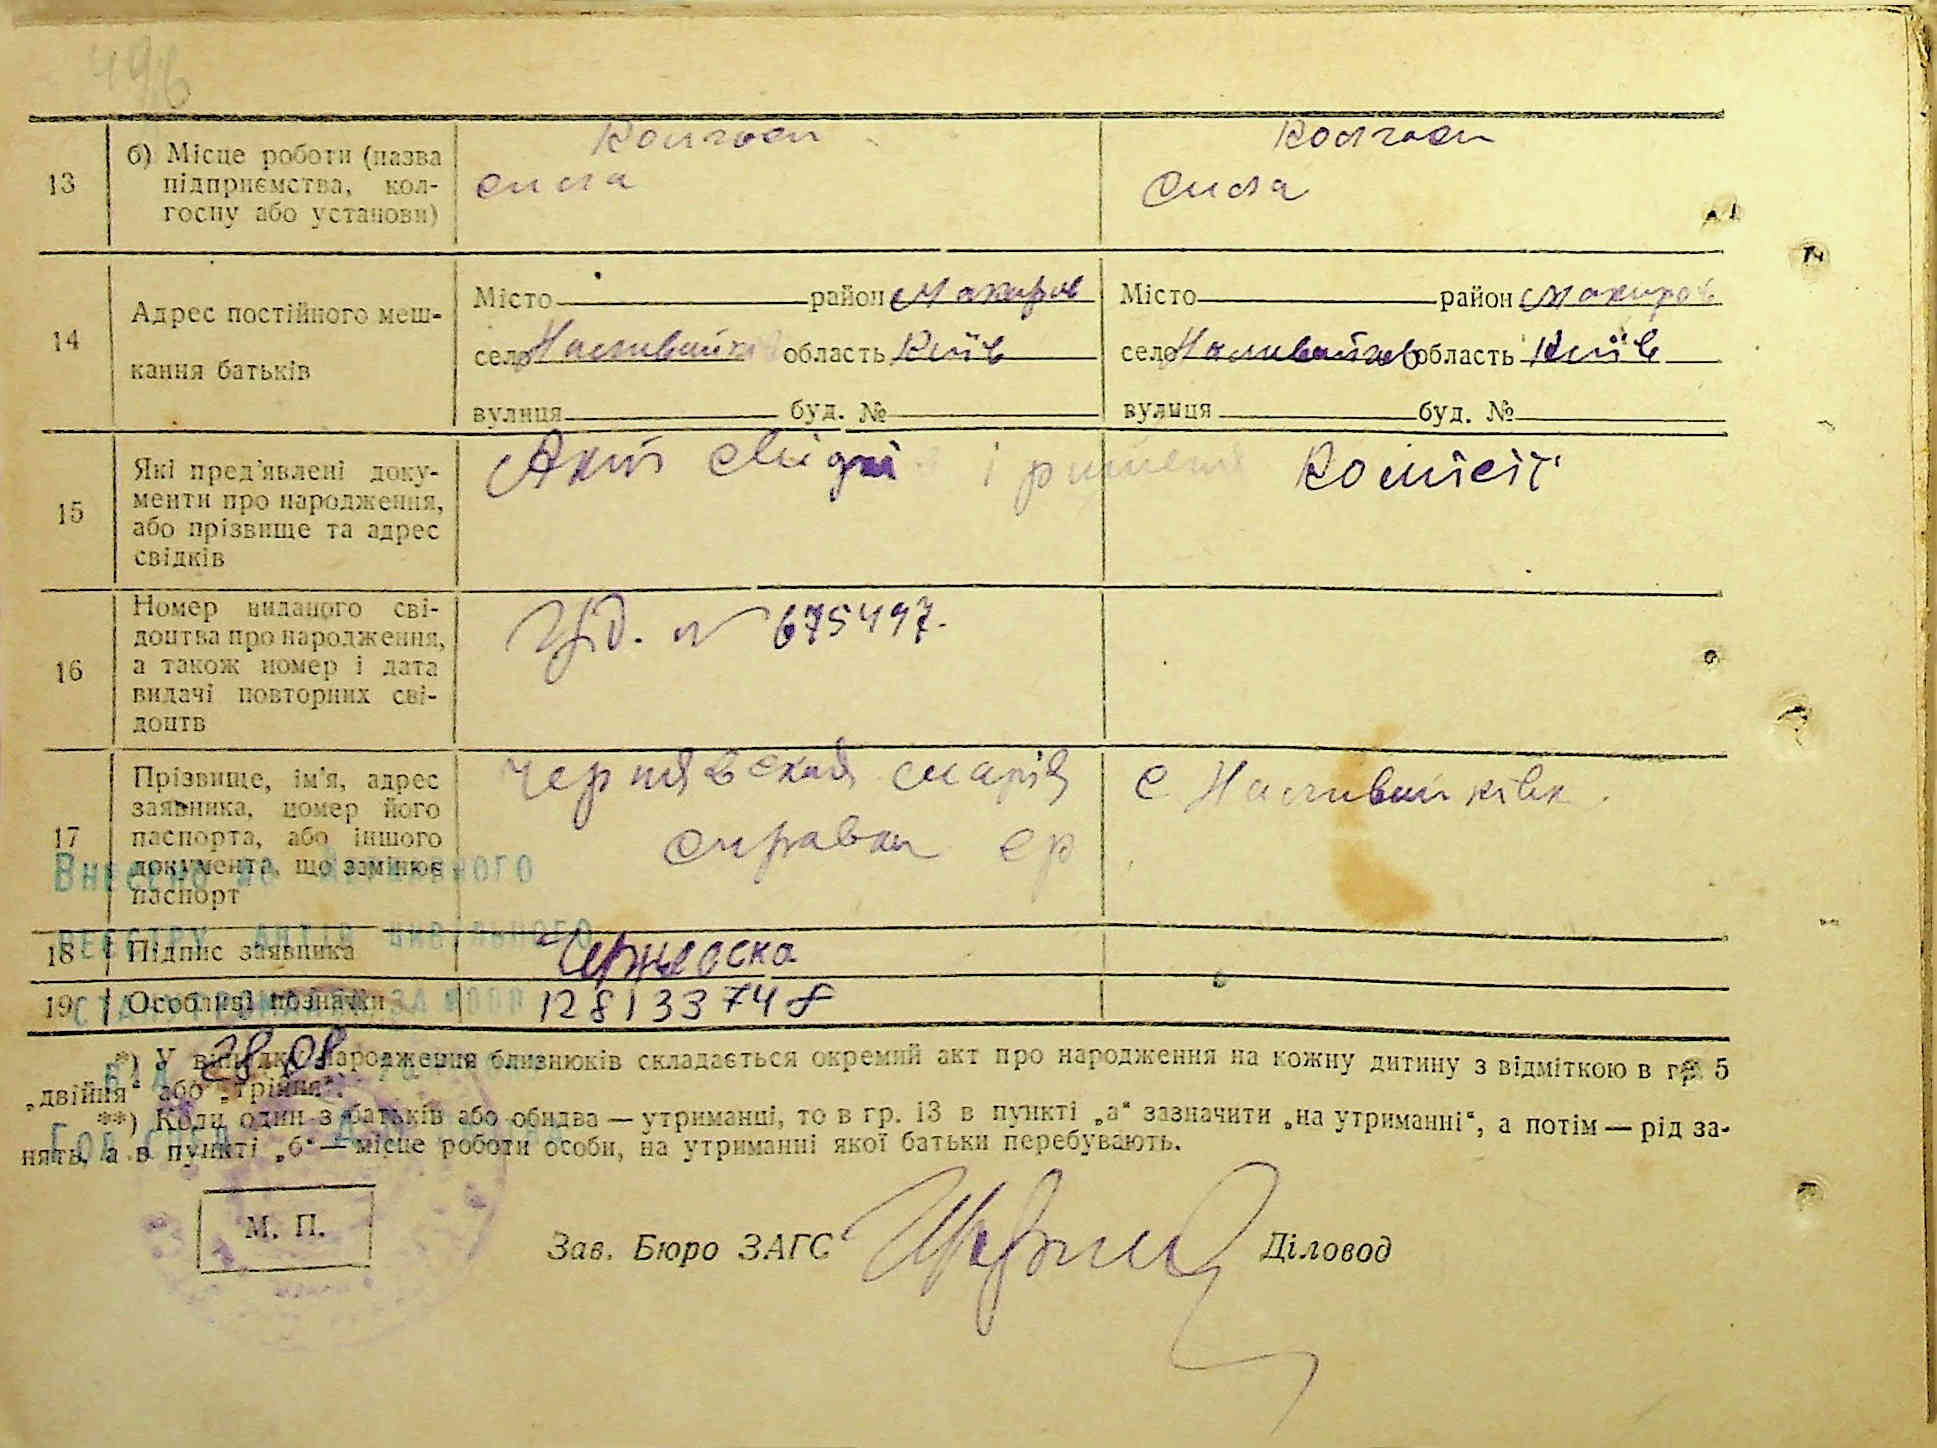 496
13
б) Місце роботи (назва
підприємства, кол-
госпу або установи)
Колгосп
сила
Колгосп
Сила
14
Адрес постійного меш-
кання батьків
Місто район Макарів
село Наливайків область Київ
вулиця буд. №
Місто район Макарів
село Наливайків область Київ
вулиця буд. №
15
Які пред'явлені доку-
менти про народження,
або прізвище та адрес
свідків
Акт і Комісії
16
Номер виданого сві-
доцтва про народження,
а також номер і дата
видачі повторних сві-
доцтв
№ 675497.
17
Прізвище, ім'я, адрес
заявника, номер його
паспорта, або іншого
документа, що замінює
паспорт
Чернявская Марія
справка ср
с Наливайківк.
Внесено до Державного
реєстру актів цивільного
18
Підпис заявника
19
Особливі позначки
128133748
28 08
*) У випадку народження близнюків складається окремий акт про народження на кожну дитину з відміткою в гр. 5
„двійня“ або „трійня“.
**) Коли один з батьків або обидва — утриманці, то в гр. 13 в пункті „а“ зазначити „на утриманні“, а потім — рід за-
нять, а в пункті „б“ — місце роботи особи, на утриманні якої батьки перебувають.
М. П.
Зав. Бюро ЗАГС Діловод